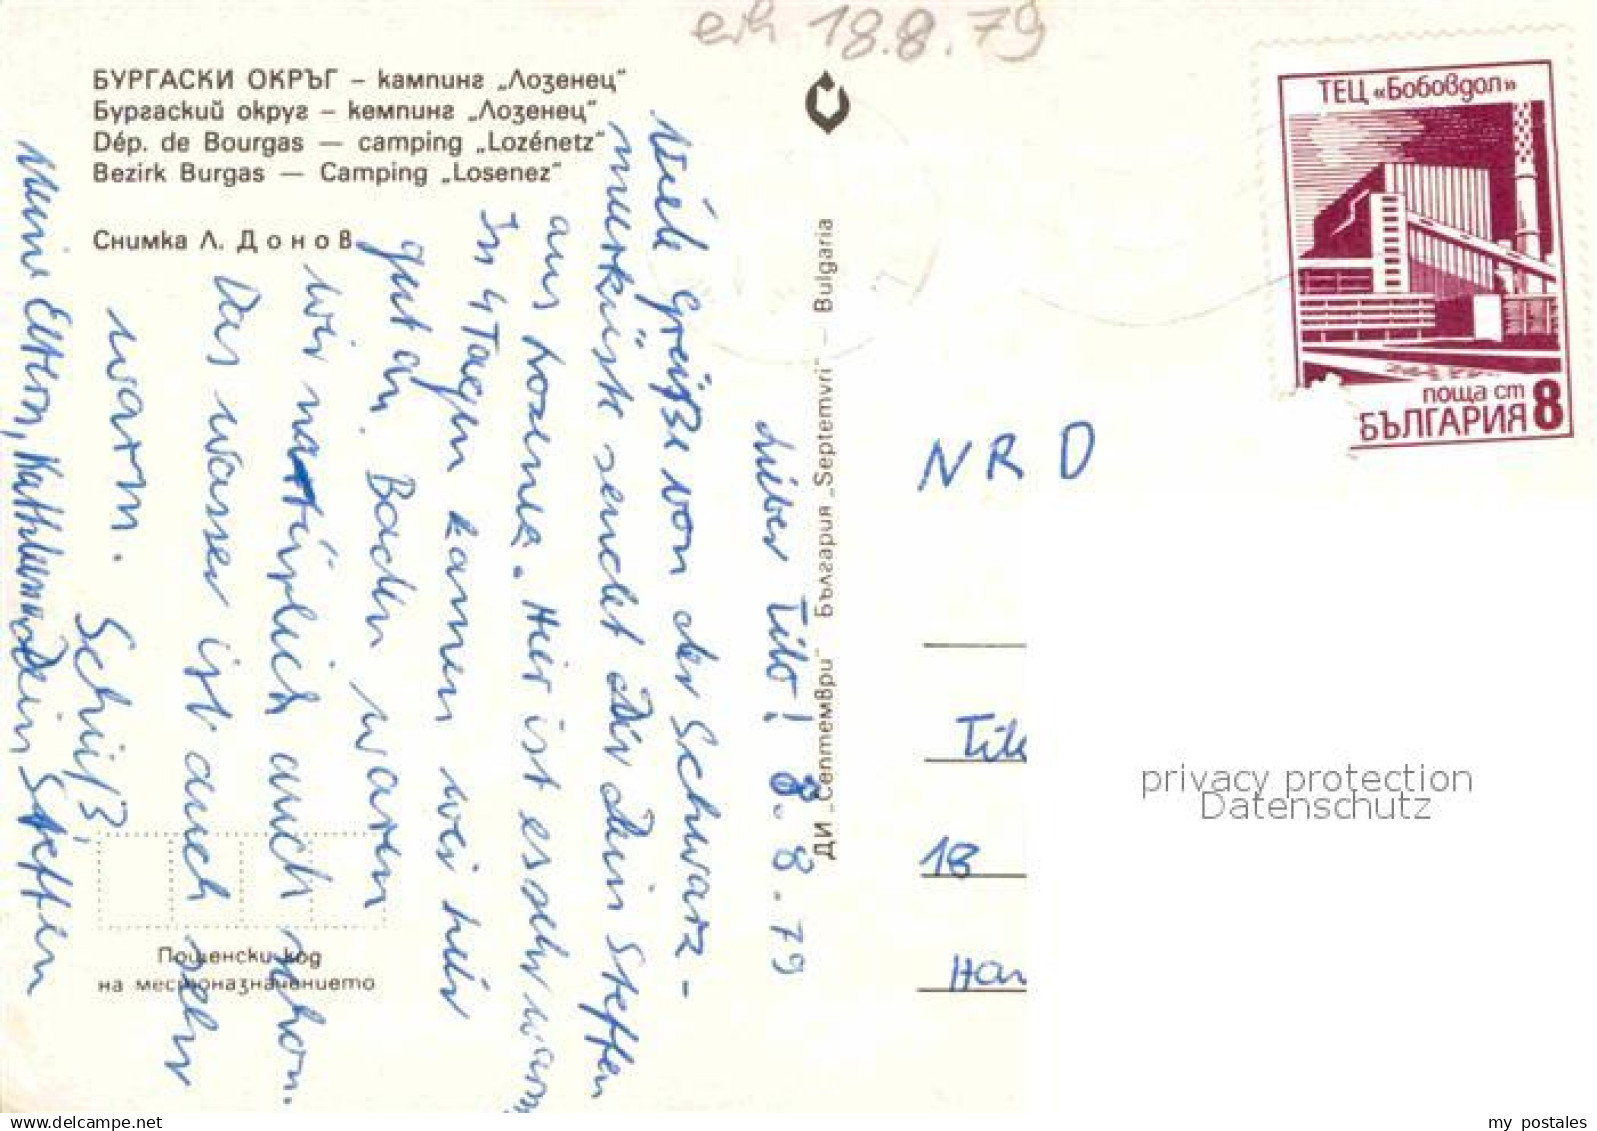 erh 18.8.79
БУРГАСКИ ОКРЪГ – кампинг „Лозенец“
Бургаский округ – кемпинг „Лозенец“
Dép. de Bourgas — camping „Lozénetz“
Bezirk Burgas — Camping „Losenez“
Снимка Л. Донов
ДИ „Септември“ България „Septemvri“ – Bulgaria
Lieber Tilo! 8.8.79
Viele Grüße von der Schwarz-
meerküste sendet Dir Dein Steffen
aus Lozenec. Hier ist es sehr warm
In 4 Tagen kamen wir hier
gut an. Baden waren
wir natürlich auch schon.
Das Wasser ist auch sehr
warm.
Tschüß
Meine Eltern, Kathleen und Dein Steffen
Пощенски код
на местоназначението
ТЕЦ «Бобовдол»
поща ст
БЪЛГАРИЯ 8
NRD
Til
18
Han
privacy protection
Datenschutz
Delcampe.net
my_postales